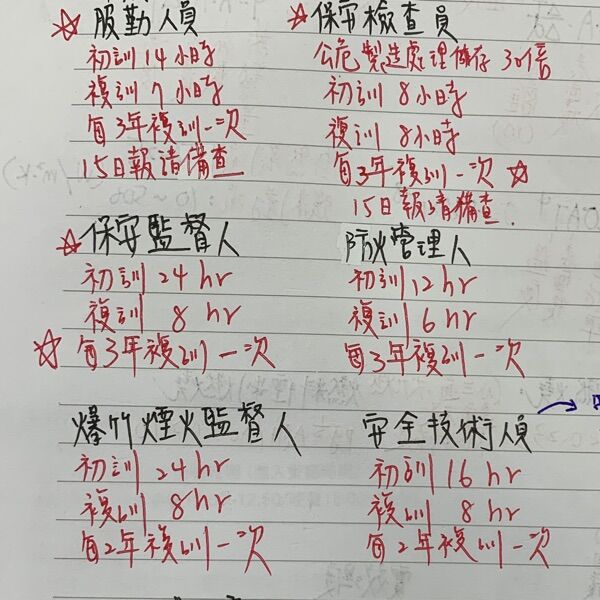 ☆ 服勤人員
初訓 14 小時
複訓 7 小時
每3年複訓一次
15日報請備查
☆ 保安檢查員
公危製造處理儲存 30倍
初訓 8小時
複訓 8小時
每3年複訓一次 ☆
15日報請備查.
☆ 保安監督人
初訓 24 hr
複訓 8 hr
☆ 每3年複訓一次
防火管理人
初訓 12 hr
複訓 6 hr
每3年複訓一次
爆竹煙火監督人
初訓 24 hr
複訓 8 hr
每2年複訓一次
安全技術人員 →
初訓 16 hr
複訓 8 hr
每2年複訓一次